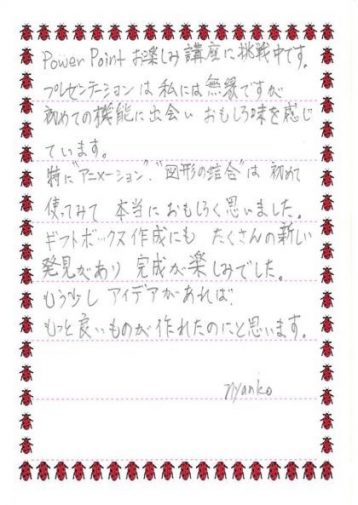 Power Point お楽しみ講座に挑戦中です。
プレゼンテーションは私には無縁ですが
初めての機能に出会い おもしろ味を感じ
ています。
特に"アニメーション"、"図形の結合"は 初めて
使ってみて 本当におもしろく思いました。
ギフトボックス作成にも たくさんの新しい
発見があり 完成が楽しみでした。
もう少し アイデアがあれば
もっと良いものが作れたのにと思います。
nyanko